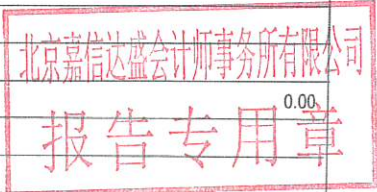 北京嘉信达盛会计师事务所有限公司
0.00
报告专用章